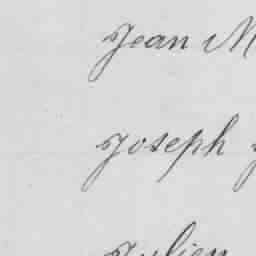 Jean M
Joseph
Julien